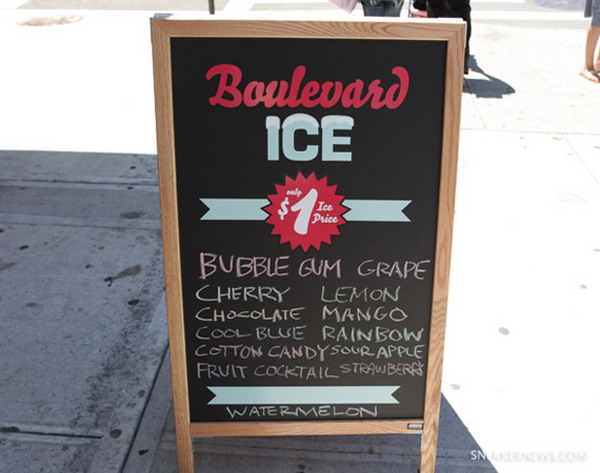 Boulevard
ICE
only
$1 Ice
Price
BUBBLE GUM GRAPE
CHERRY LEMON
CHOCOLATE MANGO
COOL BLUE RAINBOW
COTTON CANDY SOUR APPLE
FRUIT COCKTAIL STRAWBERRY
WATERMELON
SNEAKERNEWS.COM